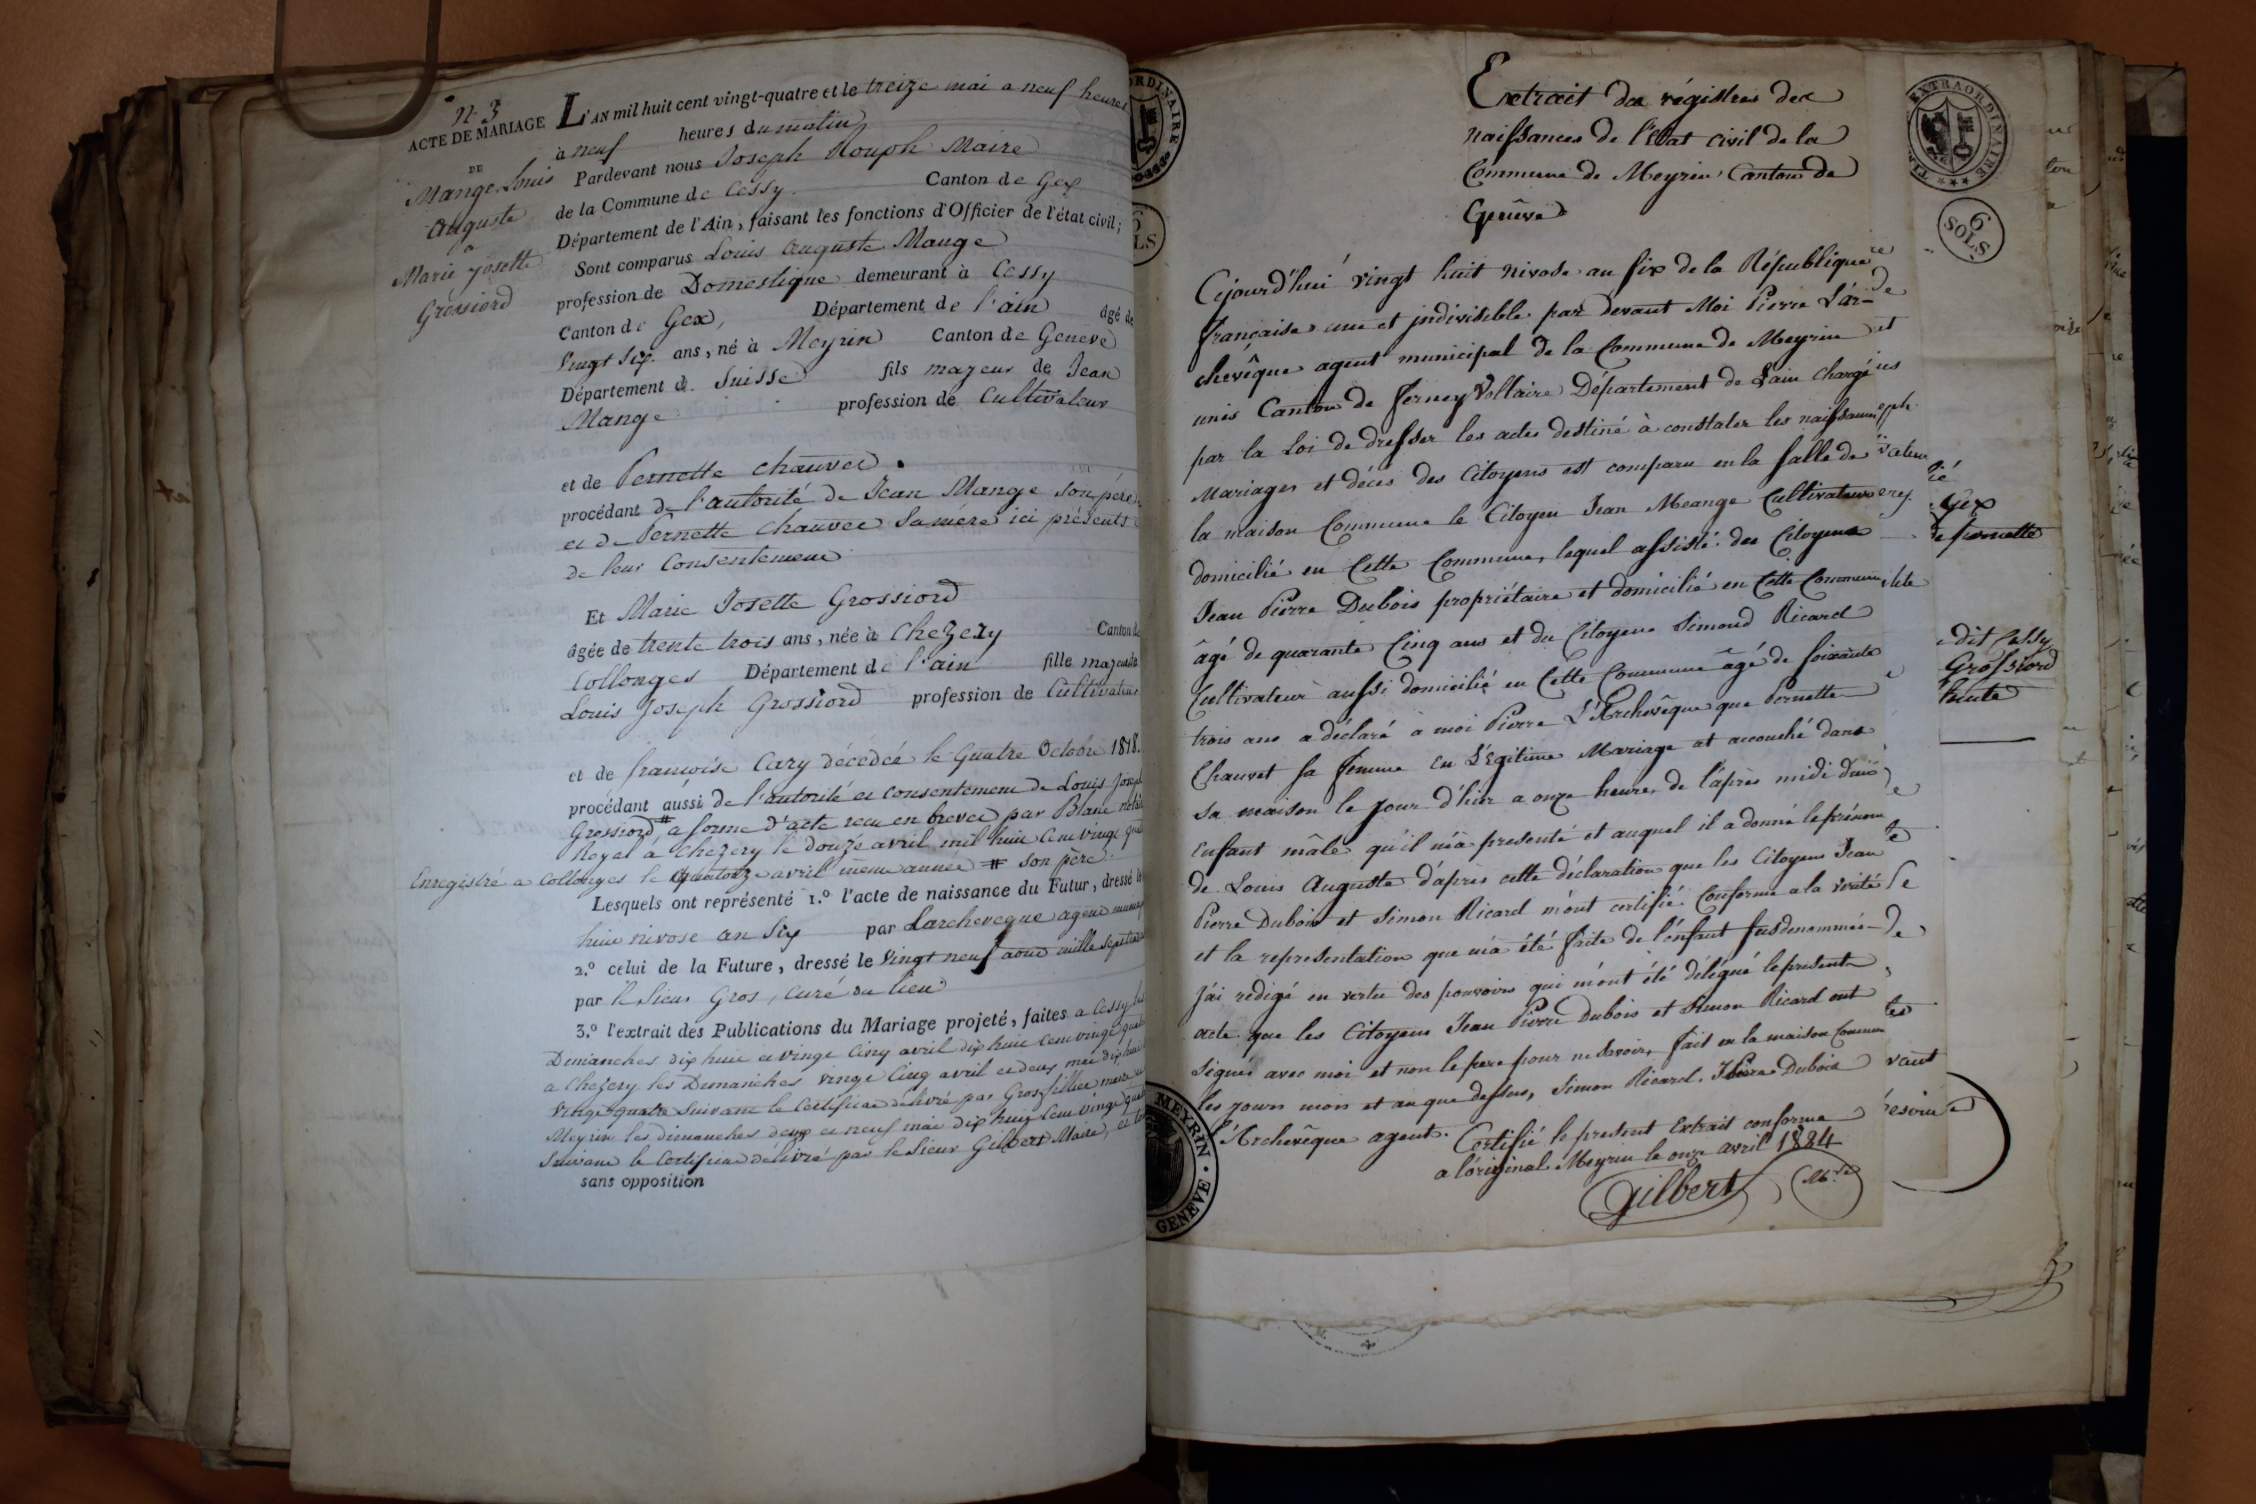 N. 3
ACTE DE MARIAGE
DE
Mange Louis
Auguste
à
Marie Josette
Grossiord
L'AN mil huit cent vingt-quatre et le treize mai a neuf heures
à neuf heures du matin
Pardevant nous Joseph Rouph Maire
de la Commune de Cessy. Canton de Gex
Département de l'Ain, faisant les fonctions d'Officier de l'état civil;
Sont comparus Louis Auguste Mange
profession de Domestique demeurant à Cessy
Canton de Gex, Département de l'ain âgé de
Vingt six ans, né à Meyrin Canton de Geneve
Département de Suisse fils majeur de Jean
Mange profession de Cultivateur
et de Pernette Chauvet.
procédant de l'autorité de Jean Mange son père
et de Pernette Chauvet Sa mère ici présents
de leur Consentement
Et Marie Josette Grossiord
âgée de trente trois ans, née à Chezery Canton de
Collonges Département de l'ain fille majeure de
Louis Joseph Grossiord profession de Cultivateur
et de françoise Cary décédée le Quatre Octobre 1818.
procédant aussi de l'autorité et consentement de Louis Joseph
Grossiord # a forme d'acte recu en brevet par Blanc
Royal à Chezery le douze avril mil huit Cent vingt
Enregistré a Collonges le quatorze avril même année # son père.
Lesquels ont représenté 1.º l'acte de naissance du Futur, dressé le
huit nivose an Six par Larcheveque agent
2.º celui de la Future, dressé le Vingt neuf aout mille
par le Sieur Gros, Curé du lieu
3.º l'extrait des Publications du Mariage projeté, faites a Cessy les
Dimanches dix huit et vingt Cinq avril dix huit Cent vingt
a Chezery les Dimanches vingt Cinq avril et deux mai dix huit
Vingt quatre Suivant le Certificat délivré par Grosfillier
Meyrin les dimanches deux et neuf mai dix huit Cent vingt
Suivant le Certificat délivré par le Sieur Gilbert Maire,
sans opposition
Extrait des régistres des
naissances de l'Etat civil de la
Commune de Meyrin, Canton de
Genêve
EXTRAORDINAIRE
6
SOLS
Cejourd'hui vingt huit nivose an six de la République
française une et indivisible par devant Moi Pierre L'ar-
chevêque agent municipal de la Commune de Meyrin
unis Canton de Ferney Voltaire Département de Lain chargé
par la Loi de dresser les actes destiné à constater les naissances
Mariages et décés des Citoyens est comparu en la salle de
la maison Commune le Citoyen Jean Meange Cultivateur
domicilié en Cette Commune, lequel assisté des Citoyens
Jean Pierre Dubois propriétaire et domicilié en Cette Commune
âgé de quarante Cinq ans et du Citoyen Simond Ricard
Cultivateur aussi domicilié en Cette Commune âgé de soixante
trois ans a déclaré à moi Pierre L'Archevêque que Pernette
Chauvet sa femme en Légitime Mariage at accouché dans
sa maison le jour d'hier a onze heures de l'après midi d'un
Enfant mâle qu'il m'a presenté et auquel il a donné le prénom
de Louis Auguste d'après cette déclaration que les Citoyens Jean
Pierre Dubois et Simon Ricard m'ont certifié Conforme a la vérité
et la representation que m'a été faite de l'enfant susdenommé
J'ai redigé en vertu des pouvoirs qui m'ont été délégué le present
acte que les Citoyens Jean Pierre Dubois et Simon Ricard ont
signés avec moi et non le pere pour ne savoir, fait en la maison Commune
les jours mois et an que dessus, Simon Ricard. J Pierre Dubois
l'Archevêque agent.
Certifié le present Extrait conforme
a l'original Meyrin le onze avril 1824
Gilbert
MEYRIN
GENEVE
Gex
de pernette
dit Cessy
Grossiord